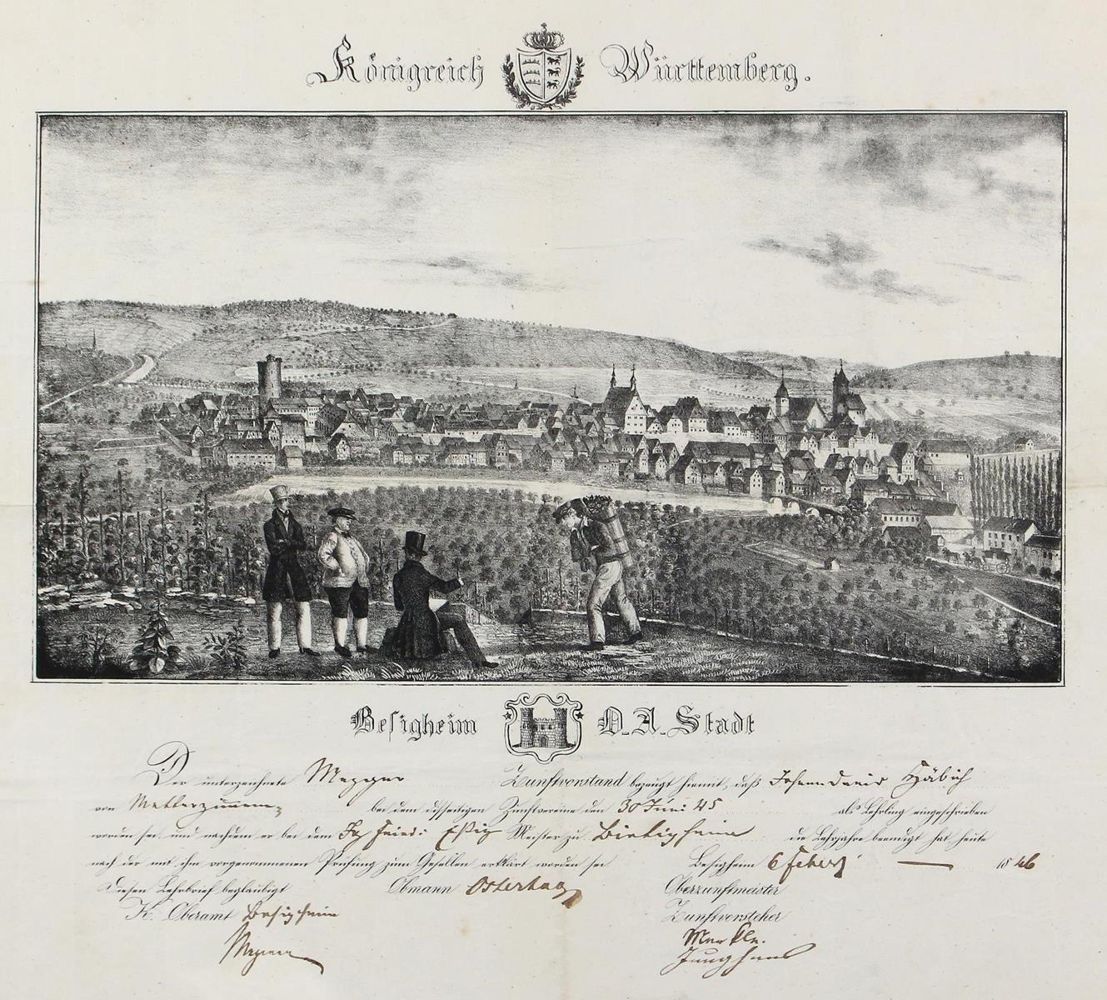 Königreich Württemberg.
Besigheim O.A. Stadt
Der unterzeichnete Mezger Zunftvorstand bezeugt hiemit, daß Johann David Häbich
von Metterzimmern bei dem diesseitigen Zunftvereine den 30 Juni 45 als Lehrling eingeschrieben
worden sei, und nachdem er bei dem Fried: Eßig Meister zu die Lehrjahre beendigt hat heute
nach der mit ihm vorgenommenen Prüfung zum Gesellen erklärt worden sei Besigheim 6 Febr. 1846
Diesen Lehrbrief beglaubigt Obmann Osterhag Oberzunftmeister
K. Oberamt Besigheim Zunftvorsteher
Merkle.
Junghans